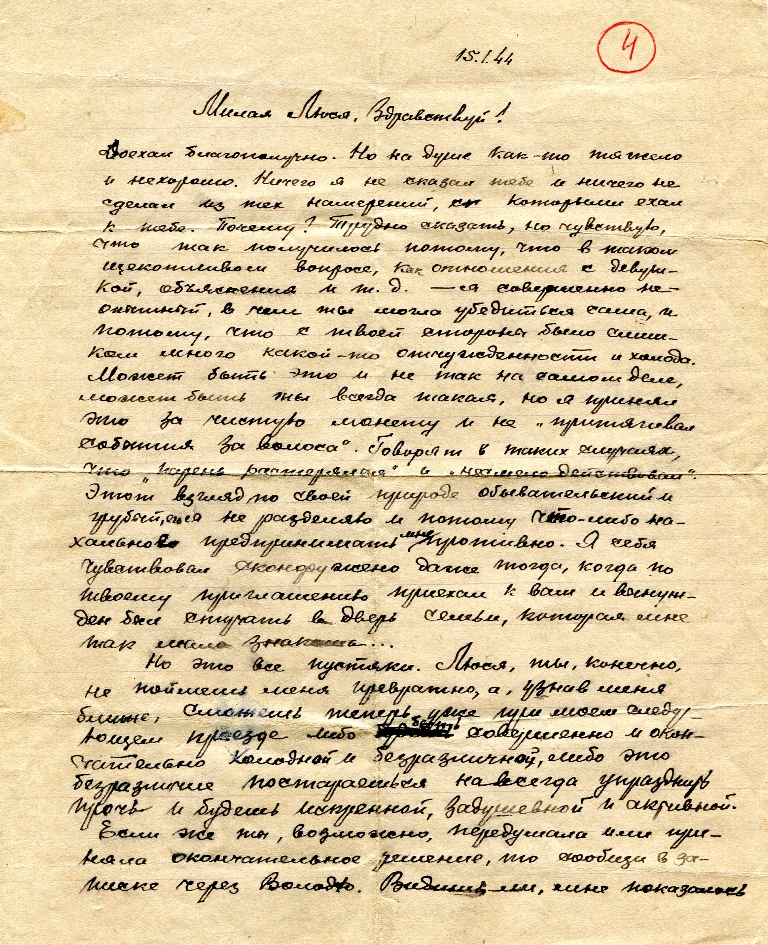 15.I.44
4
Милая Люся, Здравствуй!
Доехал благополучно. Но на душе как-то тяжело
и нехорошо. Ничего я не сказал тебе и ничего не
сделал из тех намерений, с которыми ехал
к тебе. Почему? Трудно сказать, но чувствую,
что так получилось потому, что в таком
щекотливом вопросе, как отношения с девуш-
кой, объяснения и т.д. — я совершенно не-
опытный, в чем ты могла убедиться сама, и
потому, что с твоей стороны было слиш-
ком много какой-то отчужденности и холода.
Может быть это и не так на самом деле,
может быть ты всегда такая, но я принял
это за чистую монету и не „притягивал
события за волоса". Говорят в таких случаях,
что „парень растерялся" и „несмело действовал".
Этот взгляд по своей природе обывательский и
грубый, я не разделяю и потому что-либо на-
хального предпринимать мне противно. Я себя
чувствовал сконфужено даже тогда, когда по
твоему приглашению приехал к вам и вынуж-
ден был стучать в дверь семьи, которая мне
так мало знакома...
Но это все пустяки. Люся, ты, конечно,
не поймешь меня превратно, а, узнав меня
ближе, сможешь теперь уже при моем следу-
ющем приезде либо быть совершенно и окон-
чательно холодной и безразличной, либо это
безразличие постараешься навсегда упразднить
прочь и будешь искренной, задушевной и активной.
Если же ты, возможно, передумала или при-
няла окончательное решение, то сообщи в за-
писке через Володю. Видишь ли, мне показалось